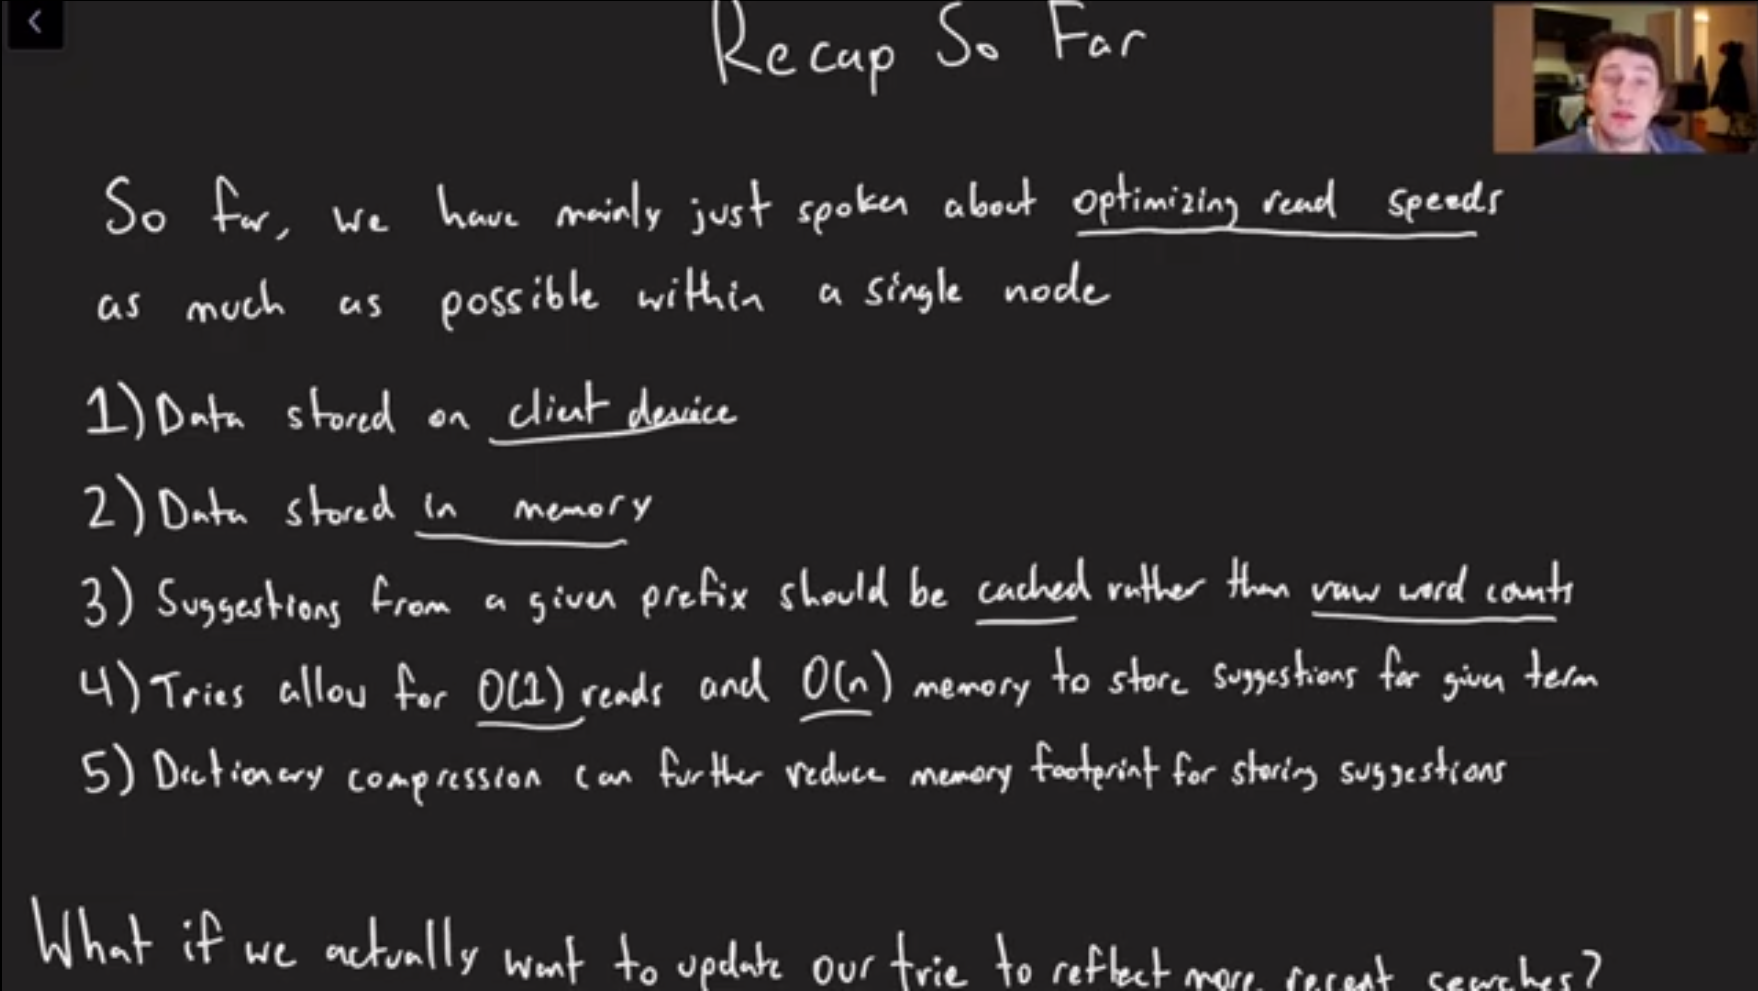 Recap So Far
So far, we have mainly just spoken about optimizing read speeds
as much as possible within a single node
1) Data stored on client device
2) Data stored in memory
3) Suggestions from a given prefix should be cached rather than raw word counts
4) Tries allow for O(1) reads and O(n) memory to store suggestions for given term
5) Dictionary compression can further reduce memory footprint for storing suggestions
What if we actually want to update our trie to reflect more recent searches?